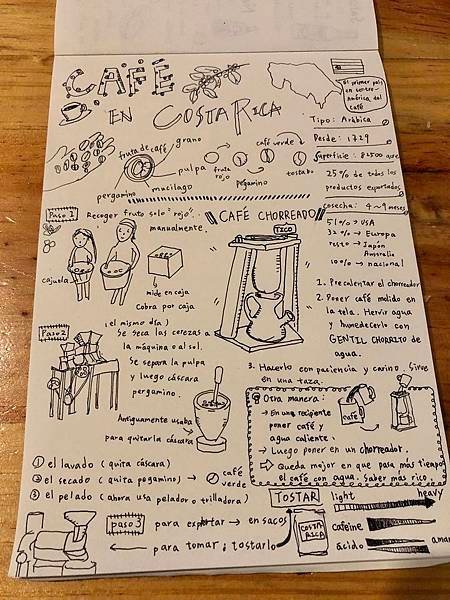 CAFÉ
EN COSTA RICA
El primer país
en centro-
américa del
café
Tipo: Arábica
Desde: 1729
Superficie: 82500
25% de todos los
productos exportados
cosecha: 4~9 meses
51% → USA
32% → Europa
resto → Japón
Australia
100% → nacional
grano
fruta de café
pulpa
mucilago
pergamino
café verde
fruta
rojo
pegamino
tostado
Paso 1
Recoger fruto solo "rojo".
manualmente.
cajuela
mide en caja
Cobra por caja
CAFÉ CHORREADO
TICO
1. Precalentar el chorreador
2. Poner café molido en
la tela. Hervir agua
y humedecerlo con
GENTIL CHORRITO de
agua.
3. Hacerlo con paciencia y carino. Sirve
en una taza.
Paso 2
(el mismo día)
Se seca las cerezas a
la máquina o al sol.
Se separa la pulpa
y luego cáscara
pergamino.
Antiguamente usaba
para quitarla cáscara
Otra manera:
→ En una recipiente
poner café y
agua caliente.
→ Luego poner en un chorreador.
Queda mejor en que pasa más tiempo
el café con agua. Saber más rico.
café
① el lavado (quita cáscara)
② el secado (quita pogamino) →
café
verde
③ el pelado (ahora usa pelador o trilladora)
Paso 3
para exportar → en sacos
para tomar; tostarlo
TOSTAR
COSTA
RICA
light
heavy
cafeine
ácido